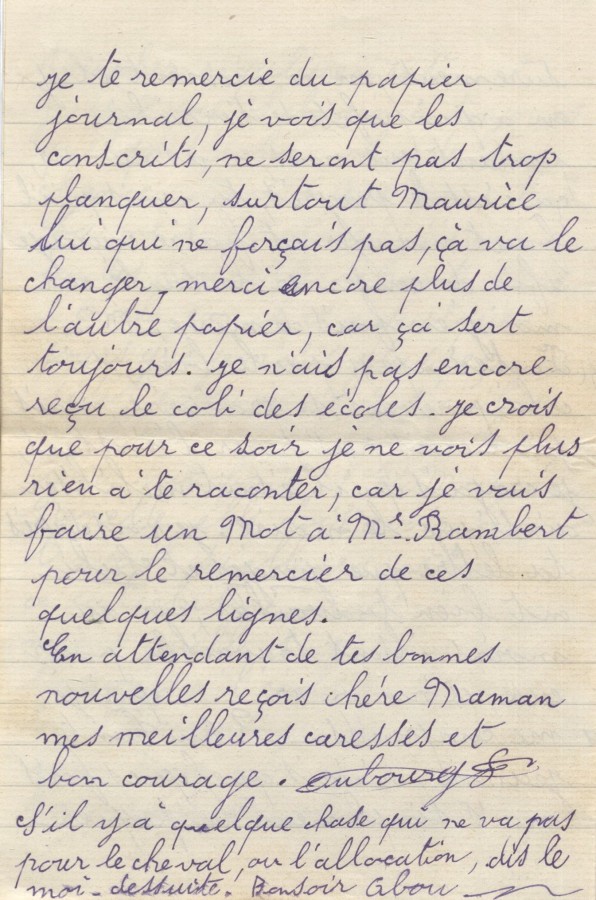 je te remercie du papier
journal, je vois que les
conscrits, ne seront pas trop
planquer, surtout Maurice
lui qui ne forçais pas, çà va le
changer, merci encore plus de
l'autre papier, car ça sert
toujours. je n'ais pas encore
reçu le coli des écoles. je crois
que pour ce soir je ne vois plus
rien à te raconter, car je vais
faire un Mot à Mr. Rambert
pour le remercier de ces
quelques lignes.
En attendant de tes bonnes
nouvelles reçois chére Maman
mes meilleures caresses et
bon courage.
S'il y à quelque chose qui ne va pas
pour le cheval, ou l'allocation, dis le
moi - dessuite. Bonsoir